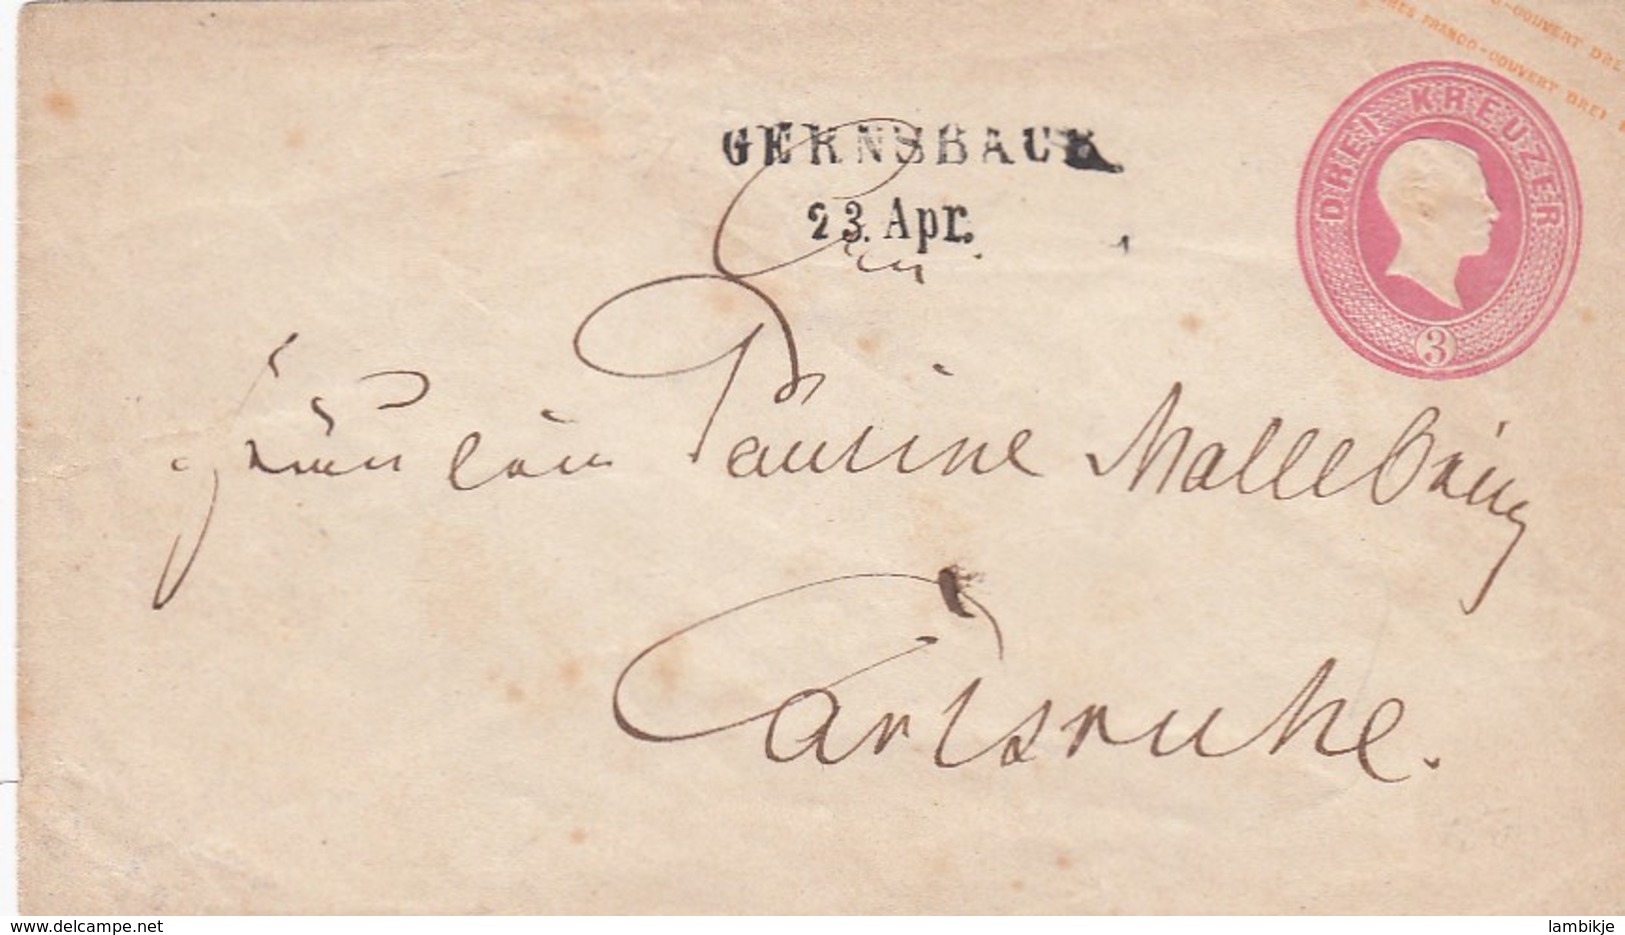 COUVERT DREI
FRANCO-COUVERT DREI
DREI KREUZER
3
GERNSBACH
23. Apr.
Fräulein Pauline Mallebrein
Carlsruhe.
delcampe.net
lambikje